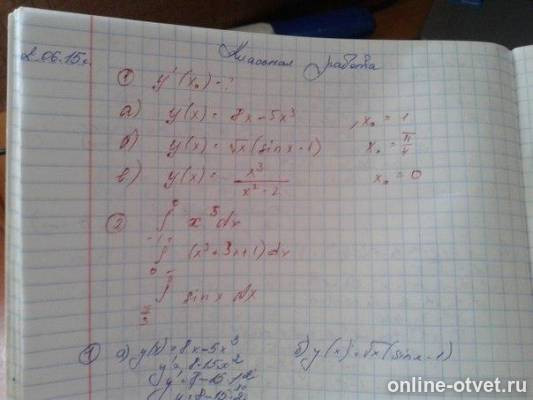 2.06.15г.
Классная работа
① y'(x₀) - ?
а) y(x) = 8x - 5x³ , x₀ = 1
б) y(x) = √x (sin x - 1) x₀ = π/4
в) y(x) = x³/(x² - 2) x₀ = 0
② ∫ x³ dx
∫ (x² + 3x + 1) dx
∫ sin x dx
① а) y(x) = 8x - 5x³ б) y(x) = √x (sin x - 1)
y' = 8 - 15x²
online-otvet.ru